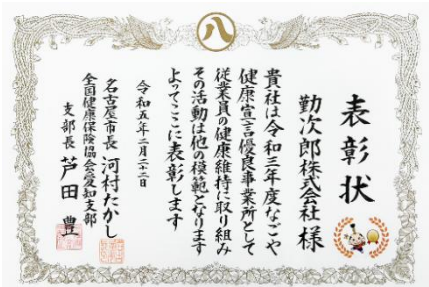 八
表彰状
勤次郎株式会社 様
貴社は令和三年度なごや
健康宣言優良事業所として
従業員の健康維持に取り組み
その活動は他の模範となります
よってここに表彰します
令和五年二月二二日
名古屋市長 河村たかし
全国健康保険協会愛知支部
支部長 芦田 豊